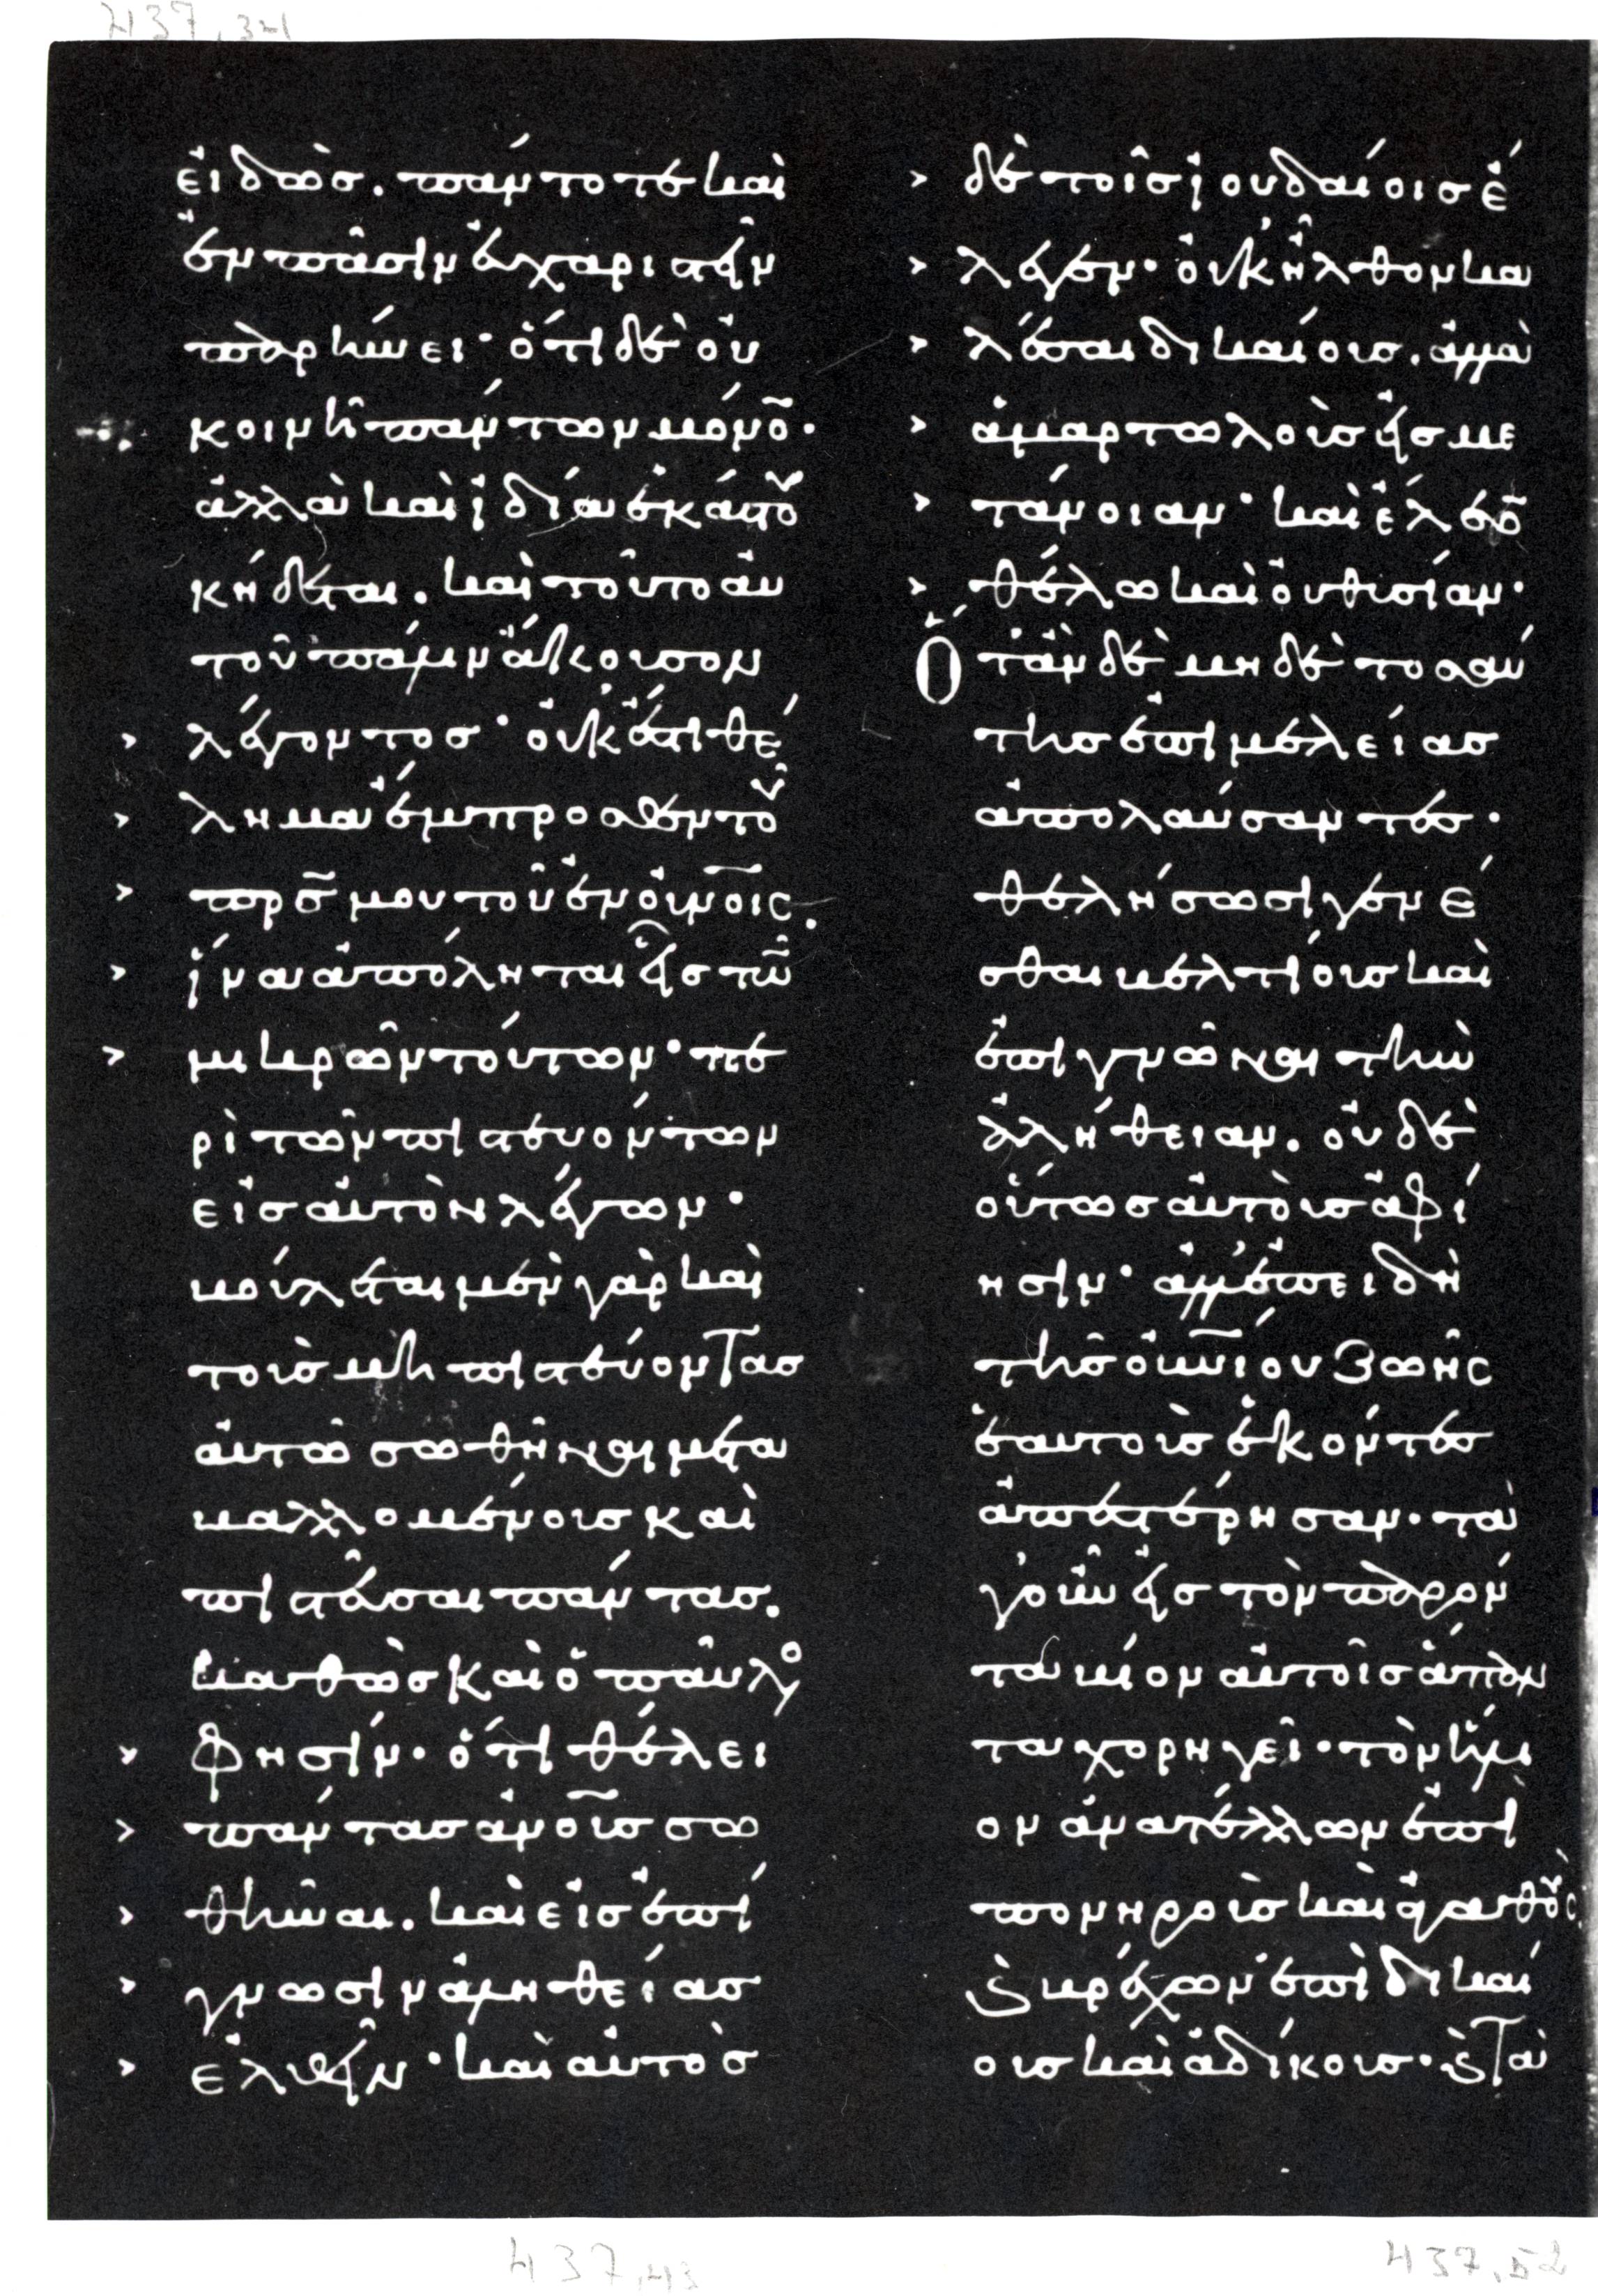 437,34
εἰδὼσ. πάντοτε καὶ
ἐν πᾶσιν εὐχαριστεῖν
παρῄνει· ὅτι δὲ οὐ
κοινῆ πάντων μόνο̃·
ἀλλὰ καὶ ἰδία ἑκάστου
κήδεται. καὶ τοῦτο αὐ
τοῦ πάλιν ἄκουσον
> λέγοντοσ· οὐκ ἔστι θέ
> λημα ἔμπροσθεν τοῦ
> πρ̅σ̅ μου τοῦ ἐν οὐν̅οῖς.
> ἵνα ἀπόληται εἷσ τῶ̅
> μικρῶν τούτων· πε
ρὶ τῶν πιστευόντων
εἰσ αὐτὸν λέγων·
βούλεται μὲν γὰρ καὶ
τοὺσ μὴ πιστεύοντασ
αὐτῶ σωθῆναι μετα
βαλλομένουσ καὶ
πιστεῦσαι πάντασ.
καθὼσ καὶ ὁ παῦλο
> φησίν· ὅτι θέλει
> πάντασ ἀνο̅υσ σω
> θῆναι. καὶ εἰσ ἐπί
> γνωσιν ἀληθείασ
> ἐλθεῖν· καὶ αὐτὸσ
> δὲ τοῖσ ἰουδαίοισ ἔ
> λεγεν· οὐκ ἦλθον κα
> λέσαι δικαίουσ. ἀλλὰ
> ἁμαρτωλοὺσ εἰσ με
> τάνοιαν· καὶ ἔλεο̃
> θέλω καὶ οὐ θυσίαν·
Ὅταν δὲ μηδὲ τοσαύ
τησ ἐπιμελείασ
ἀπολαύσαντεσ·
θελήσωσι γενέ
σθαι βελτίουσ καὶ
ἐπιγνῶναι τὴν
ἀλήθειαν. οὐδὲ
οὕτωσ αὐτοὺσ ἀφί
ησιν· ἀλλ' ἐπειδὴ
τῆσ οὐν̅ίου ζωῆς
ἑαυτοὺσ ἑκόντεσ
ἀπεστέρησαν. τὰ
γοῦν εἰσ τὸν παρόν
τα βίον αὐτοῖσ ἅπαν
τα χορηγεῖ· τὸν ἥλι
ον ἀνατέλλων ἐπὶ
πονηροὺσ καὶ ἀγαθούς.
ϗ βρέχων ἐπὶ δικαί
ουσ καὶ ἀδίκουσ· ϗ τὰ
437,43
437,52